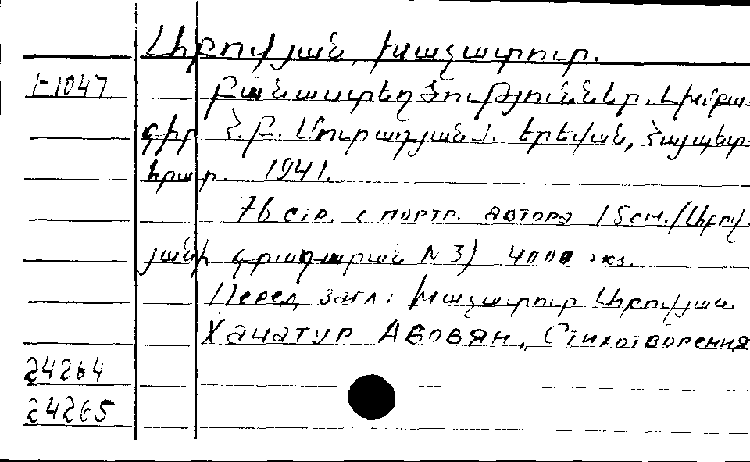 Աբովյան, Խաչատուր.
1-1047 Բանաստեղծություններ. Նխմբա-
գիր Հ. Ք. Մուրադյան. Երևան, Հայպետ-
հրատ. 1941.
76 стр. с портр. автора 15 см. (Աբով-
յանի գրադարան N 3) 4000 экз.
Перед загл: Խաչատուր Աբովյան
Хачатур Абовян, Стихотворения
24264
24265